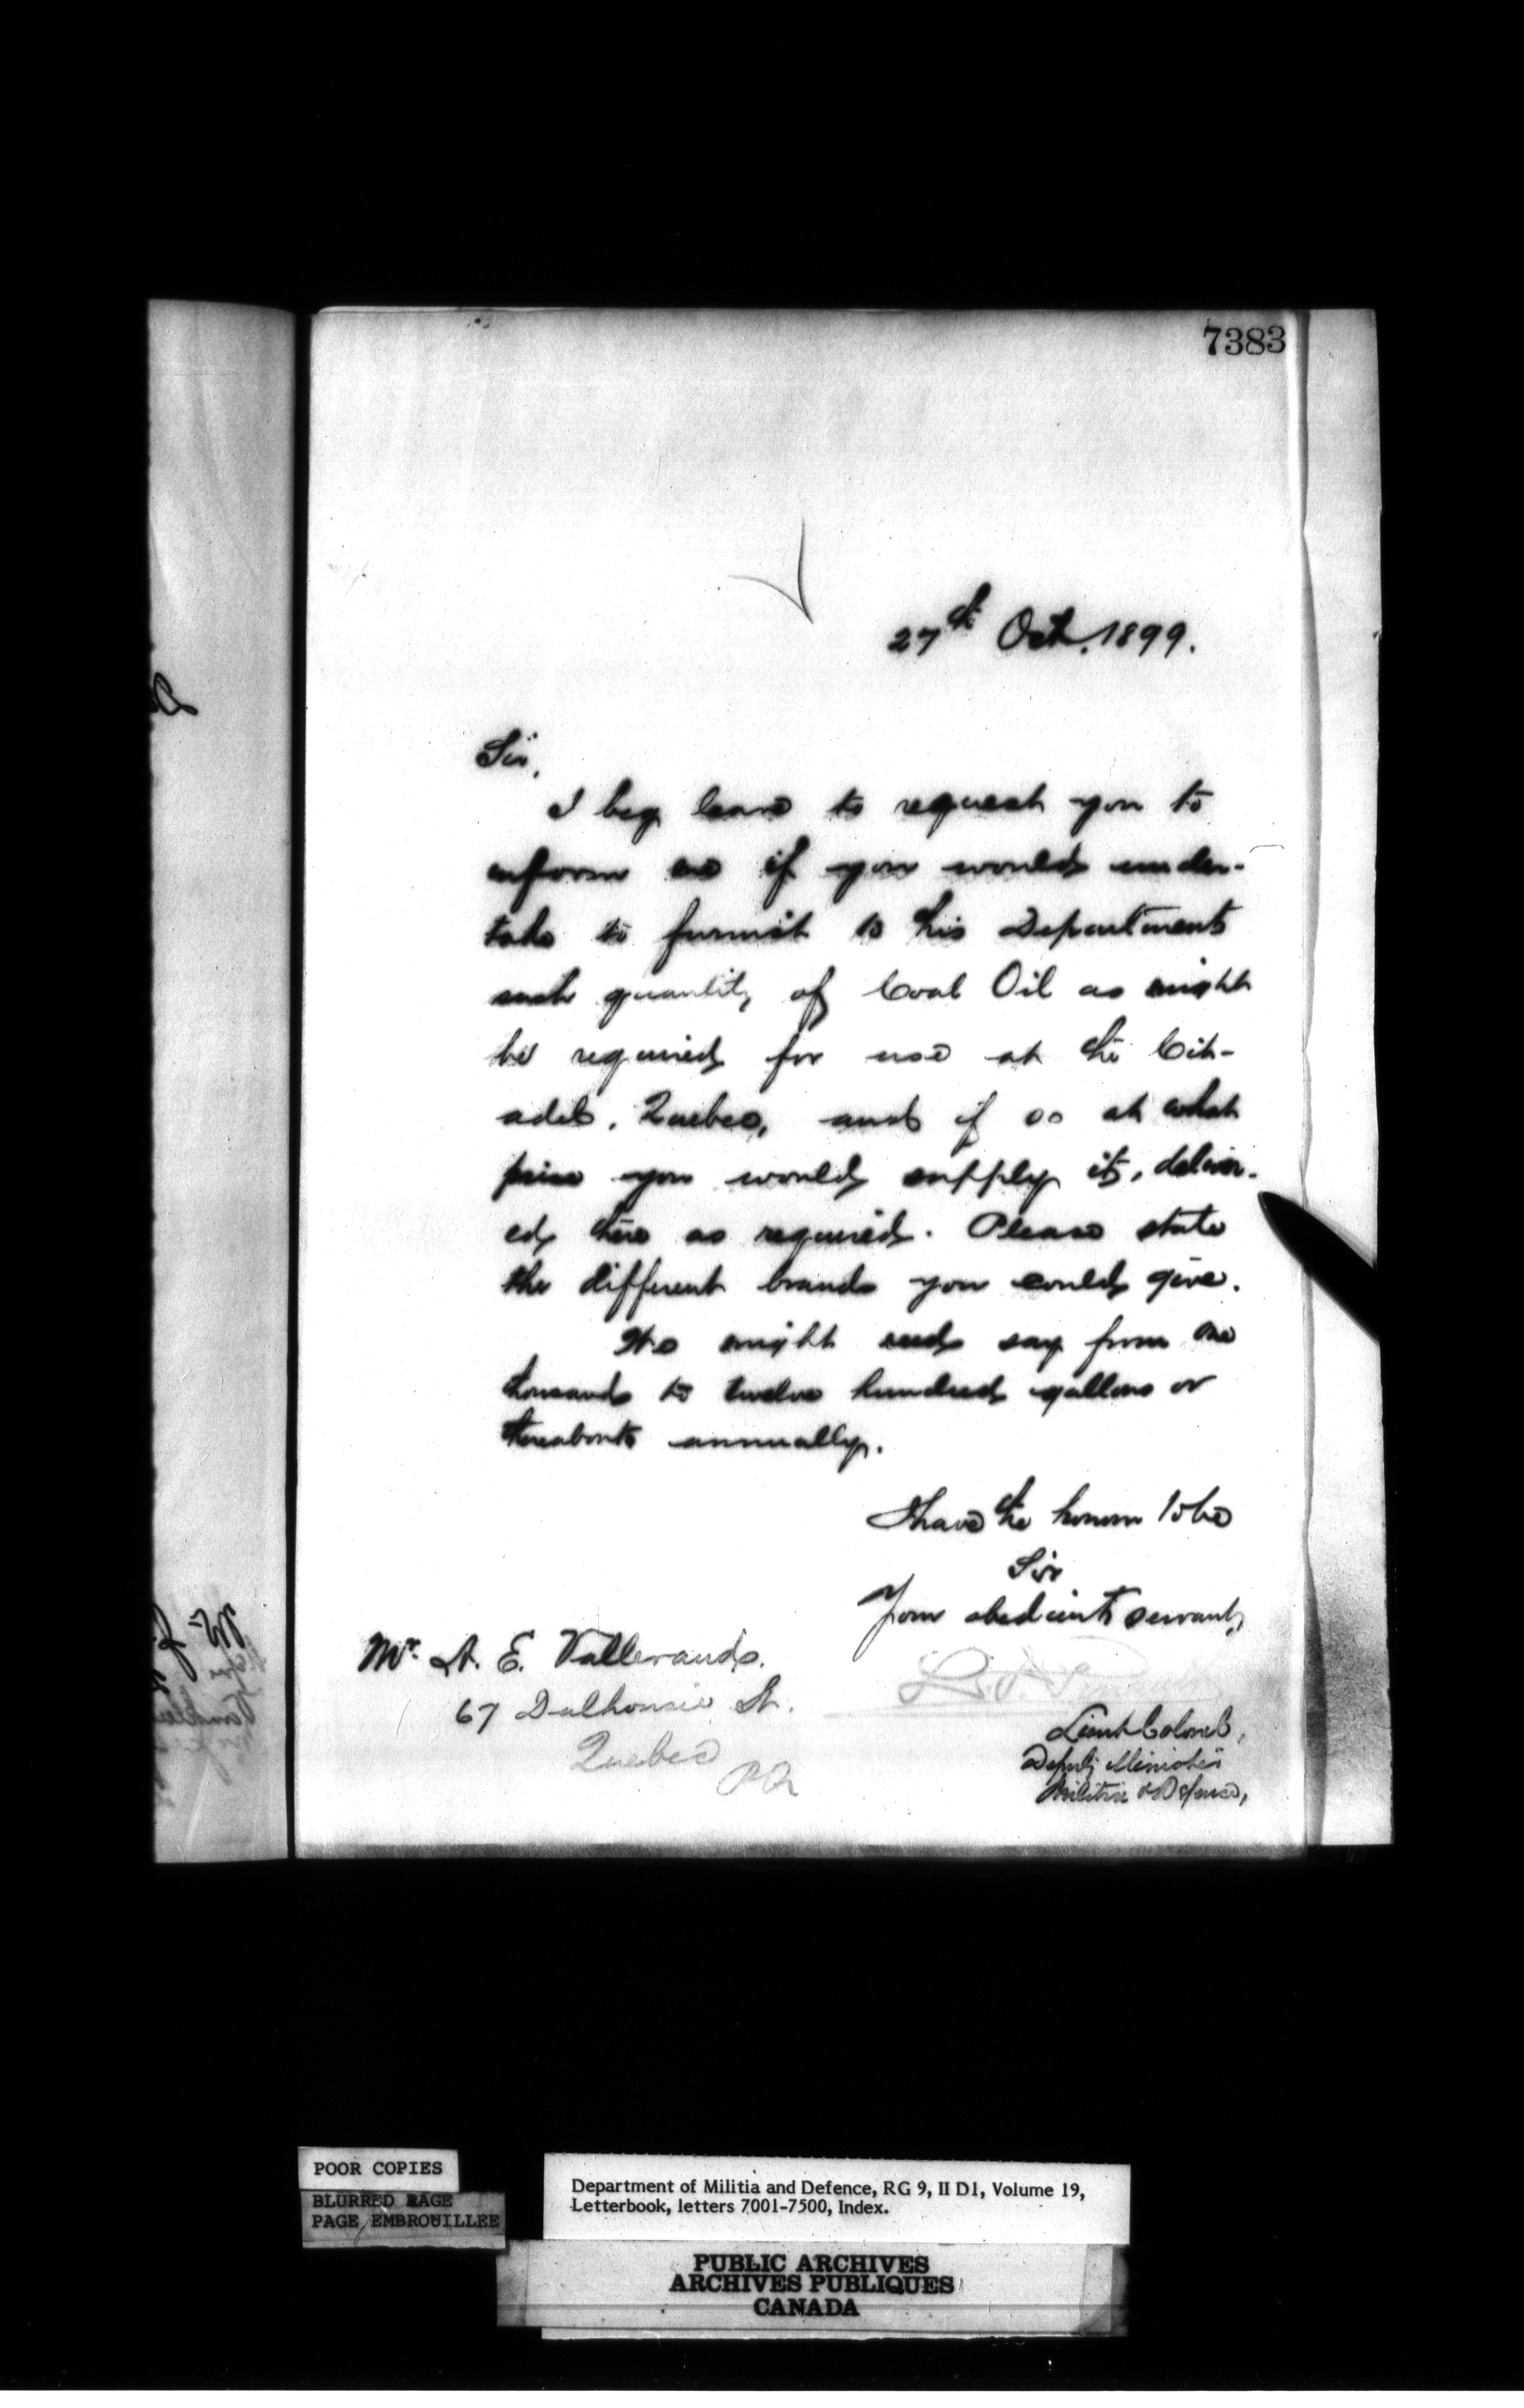 7383
27th Oct. 1899.
Sir,
I beg leave to request you to
inform me if you would under-
take to furnish to this Department
such quantity of Coal Oil as might
be required for use at the Cit-
adel, Quebec, and if so at what
price you would supply it, deliver-
ed there as required. Please state
the different brands you could give.
We might need say from one
thousand to twelve hundred gallons or
thereabouts annually.
I have the honour to be
Sir
Your obedient servant,
Mr. A. E. Vallerand.
67 Dalhousie St.
Quebec
P.Q.
Lieut Colonel,
Deputy Minister
Militia & Defence,
POOR COPIES
BLURRED PAGE
PAGE EMBROUILLEE
Department of Militia and Defence, RG 9, II D1, Volume 19,
Letterbook, letters 7001-7500, Index.
PUBLIC ARCHIVES
ARCHIVES PUBLIQUES
CANADA